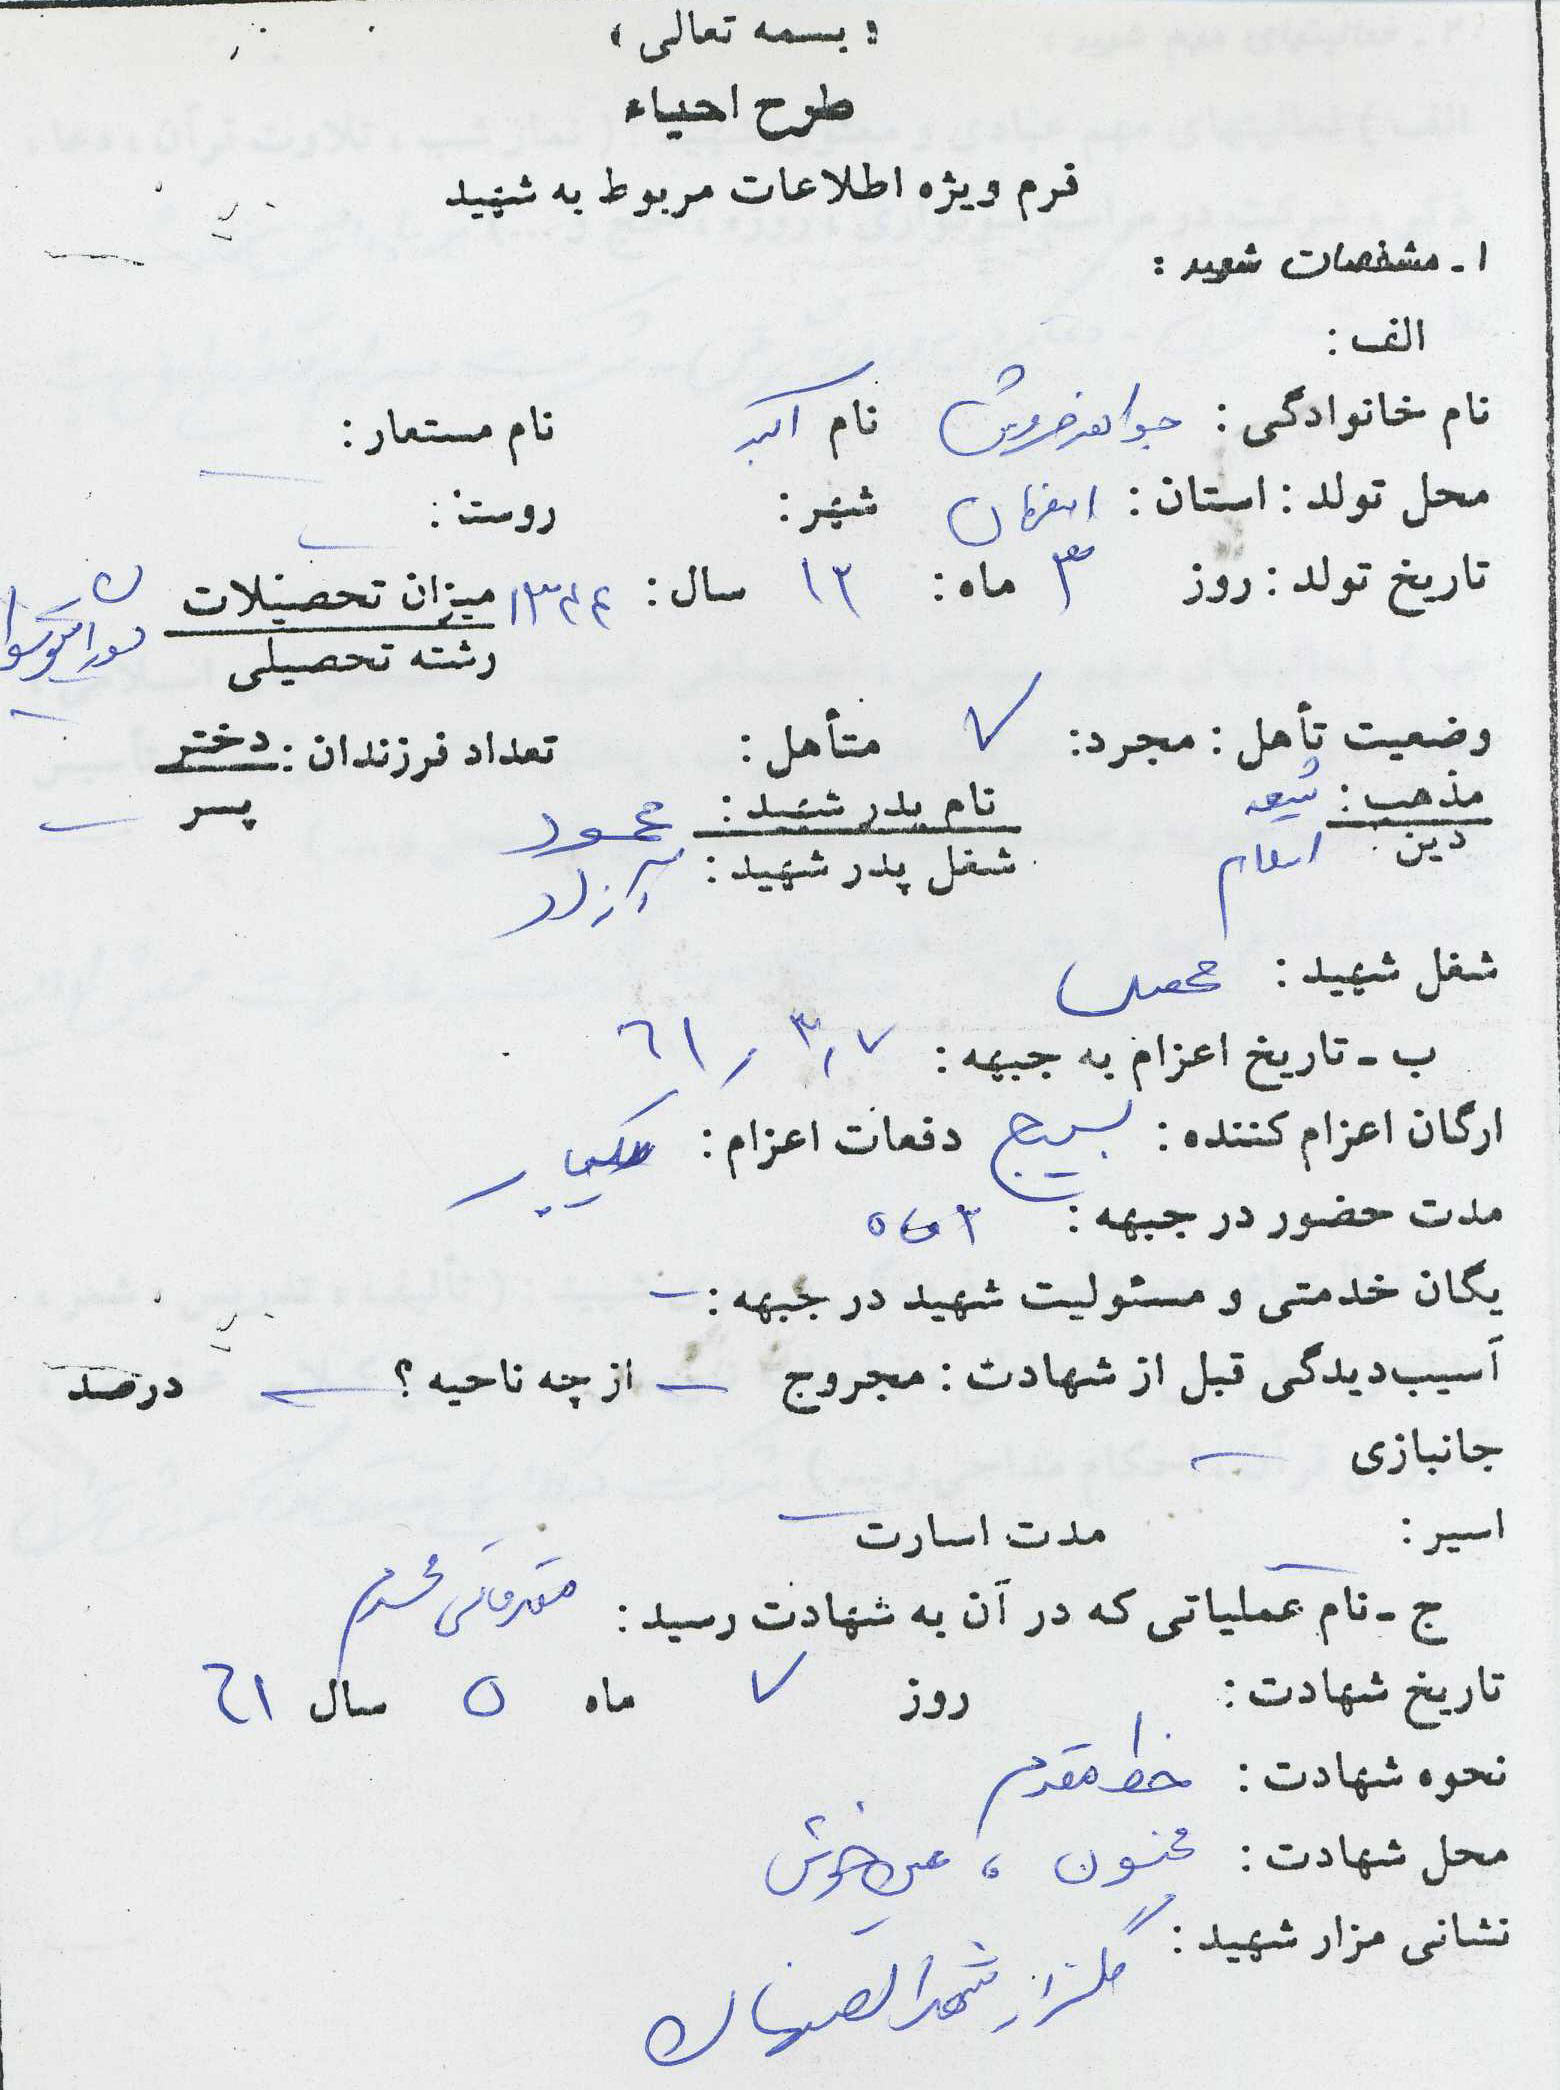 « بسمه تعالی »
طرح احیاء
فرم ویژه اطلاعات مربوط به شهید
۱ـ مشخصات شهید :
الف :
نام خانوادگی : جواهرفروش نام اکبر نام مستعار : ـ
محل تولد : استان : اصفهان شهر : روستا : ـ
تاریخ تولد : روز ۳ ماه : ۱۲ سال : ۱۳۴۴ میزان تحصیلات
رشته تحصیلی
وضعیت تأهل : مجرد : ✓ متأهل : تعداد فرزندان : دختر
پسر ـ
مذهب : شیعه نام پدر شهید : محمود
دین اسلام شغل پدر شهید : آزاد
شغل شهید : محصل
ب ـ تاریخ اعزام به جبهه : ۷ / ۳ / ۶۱
ارگان اعزام کننده : بسیج دفعات اعزام : یکبار
مدت حضور در جبهه : ۲ ماه
یگان خدمتی و مسئولیت شهید در جبهه : ـ
آسیب‌دیدگی قبل از شهادت : مجروح ـ از چه ناحیه ؟ ـ درصد
جانبازی ـ
اسیر : ـ مدت اسارت ـ
ج ـ نام عملیاتی که در آن به شهادت رسید : مقدماتی محرم
تاریخ شهادت : روز ۷ ماه ۵ سال ۶۱
نحوه شهادت : خط مقدم
محل شهادت : مجنون ، عین خوش
نشانی مزار شهید : گلزار شهدا اصفهان